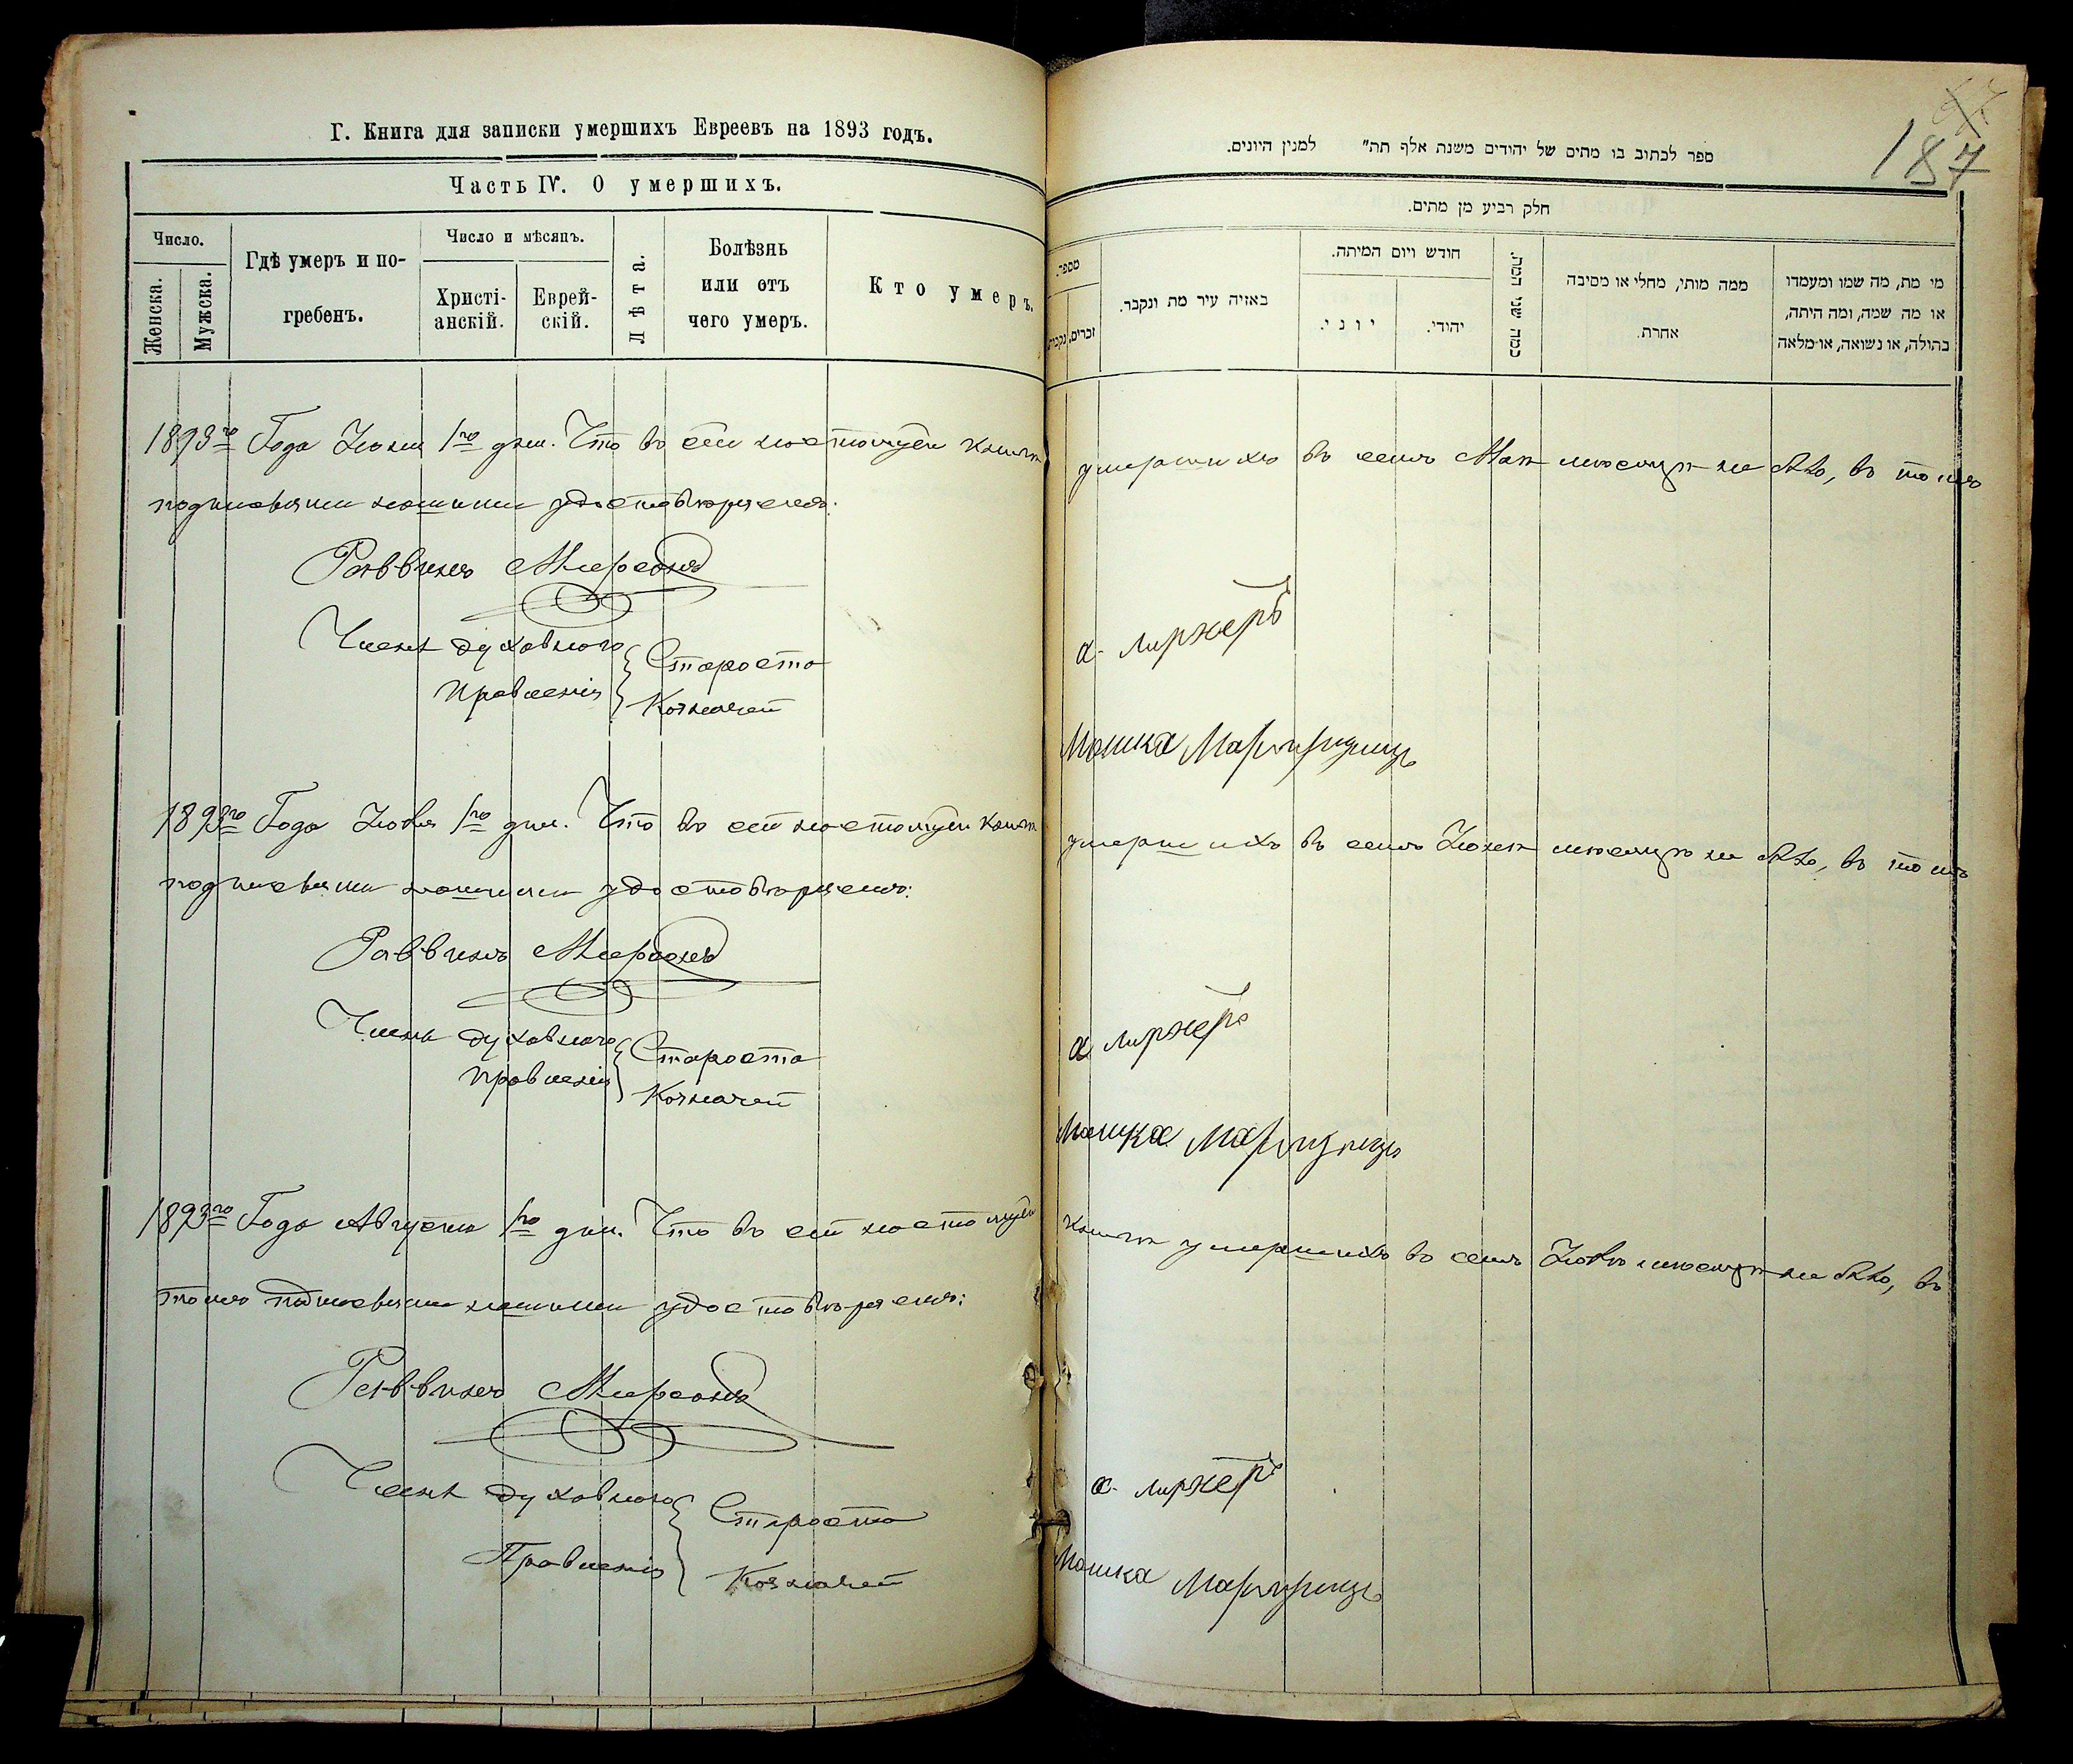 Г. Книга для записки умершихъ Евреевъ на 1893 годъ.
Часть IV. О умершихъ.
Число.
Женска.
Мужска.
Гдѣ умеръ и по-
гребенъ.
Число и мѣсяцъ.
Христі-
анскій.
Еврей-
скій.
Лѣта.
Болѣзнь
или отъ
чего умеръ.
Кто умеръ.
1893го Года Іюня 1го дня. Что въ сей настоящей книгѣ
подписями нашими удостовѣряемъ:
Раввинъ Мерсонъ
Члены духовнаго
Правленія
Староста
Казначей
1893го Года Іюля 1го дня. Что въ сей настоящей книгѣ
подписями нашими удостовѣряемъ:
Раввинъ Мерсонъ
Члены духовнаго
Правленія
Староста
Казначей
1893го Года Августа 1го дня. Что въ сей настоящей
томъ подписями нашими удостовѣряемъ:
Раввинъ Мерсонъ
Члены духовнаго
Правленія
Староста
Казначей
187
ספר לכתוב בו מתים של יהודים משנת אלף תת" למנין היונים.
חלק רביע מן מתים.
מספר.
זכרים,
נקבות
באזיה עיר מת ונקבר.
חודש ויום המיתה.
יוני.
יהודי.
כמה שני המת.
ממה מותי, מחלי או מסיבה
אחרת.
מי מת, מה שמו ומעמדו
או מה שמה, ומה היתה,
בתולה, או נשואה, או מלאה
умершихъ въ семъ Маѣ мѣсяцѣ не было, въ томъ
Мошка
умершихъ въ семъ Іюнѣ мѣсяцѣ не было, въ томъ
Мошка
книгѣ умершихъ въ семъ Іюлѣ мѣсяцѣ не было, въ
Мошка